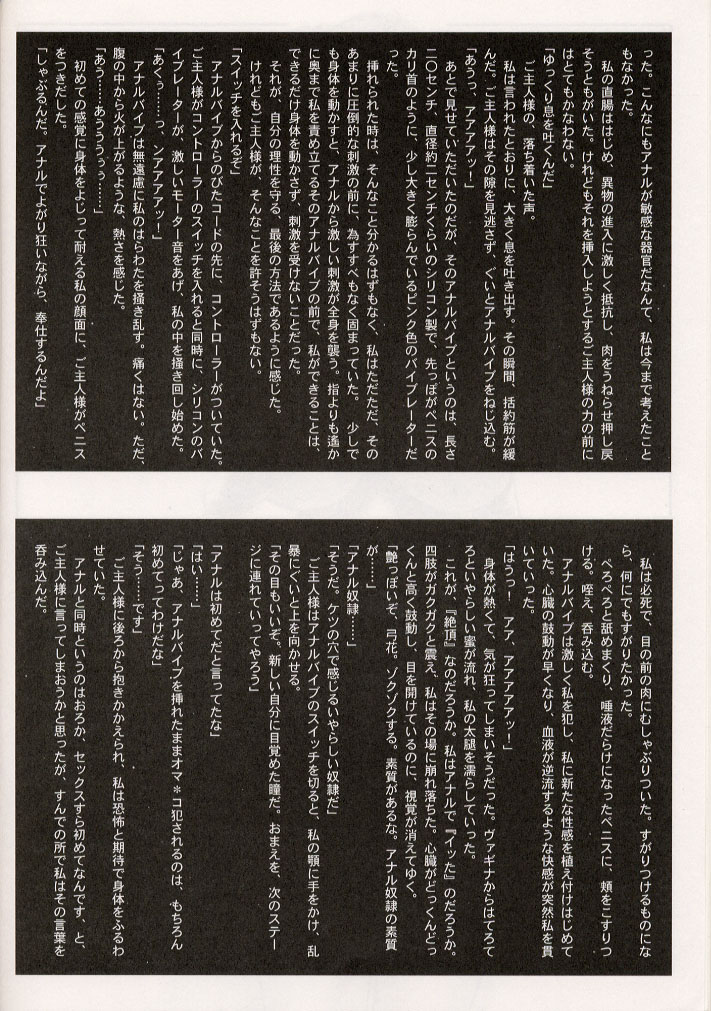 った。こんなにもアナルが敏感な器官だなんて、私は今まで考えたこと
もなかった。
私の直腸ははじめ、異物の進入に激しく抵抗し、肉をうねらせ押し戻
そうともがいた。けれどもそれを挿入しようとするご主人様の力の前に
はとてもかなわない。
「ゆっくり息を吐くんだ」
ご主人様の、落ち着いた声。
私は言われたとおりに、大きく息を吐き出す。その瞬間、括約筋が緩
んだ。ご主人様はその隙を見逃さず、ぐいとアナルバイブをねじ込む。
「あうっ、アアアアッ!」
あとで見せていただいたのだが、そのアナルバイブというのは、長さ
二〇センチ、直径約二センチくらいのシリコン製で、先っぽがペニスの
カリ首のように、少し大きく膨らんでいるピンク色のバイブレーターだ
った。
挿れられた時は、そんなこと分かるはずもなく、私はただただ、その
あまりに圧倒的な刺激の前に、為すすべもなく固まっていた。少しで
も身体を動かすと、アナルから激しい刺激が全身を襲う。指よりも遙か
に奥まで私を責め立てるそのアナルバイブの前で、私ができることは、
できるだけ身体を動かさず、刺激を受けないことだった。
それが、自分の理性を守る、最後の方法であるように感じた。
けれどもご主人様が、そんなことを許そうはずもない。
「スイッチを入れるぞ」
アナルバイブからのびたコードの先に、コントローラーがついていた。
ご主人様がコントローラーのスイッチを入れると同時に、シリコンのバ
イブレーターが、激しいモーター音をあげ、私の中を掻き回し始めた。
「あくぅ……っ、ンアアアアッ!」
アナルバイブは無遠慮に私のはらわたを掻き乱す。痛くはない。ただ、
腹の中から火が上がるような、熱さを感じた。
「あう……あうううぅぅ……」
初めての感覚に身体をよじって耐える私の顔面に、ご主人様がペニス
をつきだした。
「しゃぶるんだ。アナルでよがり狂いながら、奉仕するんだよ」
私は必死で、目の前の肉にむしゃぶりついた。すがりつけるものにな
ら、何にでもすがりたかった。
べろべろと舐めまくり、唾液だらけになったペニスに、頬をこすりつ
ける。咥え、呑み込む。
アナルバイブは激しく私を犯し、私に新たな性感を植え付けはじめて
いた。心臓の鼓動が早くなり、血液が逆流するような快感が突然私を貫
いていった。
「はうっ! アア、アアアアアッ!」
身体が熱くて、気が狂ってしまいそうだった。ヴァギナからはてろて
ろといやらしい蜜が流れ、私の太腿を濡らしていった。
これが、『絶頂』なのだろうか。私はアナルで『イッた』のだろうか。
四肢がガクガクと震え、私はその場に崩れ落ちた。心臓がどっくんどっ
くんと高く鼓動し、目を開けているのに、視覚が消えてゆく。
「艶っぽいぞ、弓花。ゾクゾクする。素質があるな。アナル奴隷の素質
が……」
「アナル奴隷……」
「そうだ。ケツの穴で感じるいやらしい奴隷だ」
ご主人様はアナルバイブのスイッチを切ると、私の顎に手をかけ、乱
暴にくいと上を向かせる。
「その目もいいぞ。新しい自分に目覚めた瞳だ。おまえを、次のステー
ジに連れていってやろう」
「アナルは初めてだと言ってたな」
「はい……」
「じゃあ、アナルバイブを挿れたままオマ＊コ犯されるのは、もちろん
初めてってわけだな」
「そう……です」
ご主人様に後ろから抱きかかえられ、私は恐怖と期待で身体をふるわ
せていた。
アナルと同時というのはおろか、セックスすら初めてなんです、と、
ご主人様に言ってしまおうかと思ったが、すんでの所で私はその言葉を
呑み込んだ。